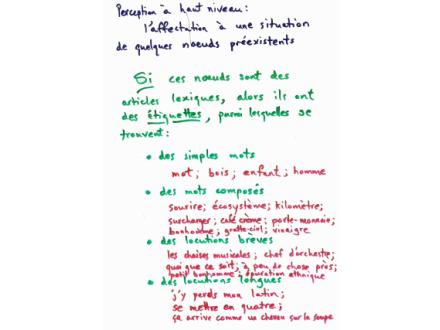 Perception à haut niveau:
l'affectation à une situation
de quelques noeuds préexistents
Si ces noeuds sont des
articles lexiques, alors ils ont
des étiquettes, parmi lesquelles se
trouvent:
• des simples mots
mot; bois; enfant; homme
• des mots composés
sourire; écosystème; kilomètre;
surcharger; café crème; porte-monnaie;
bonhomme; gratte-ciel; vinaigre
• des locutions brèves
les chaises musicales; chef d'orchestre;
quoi que ce soit; à peu de chose près;
petit bonhomme; épuration ethnique
• des locutions longues
j'y perds mon latin;
se mettre en quatre;
ça arrive comme un cheveu sur la soupe